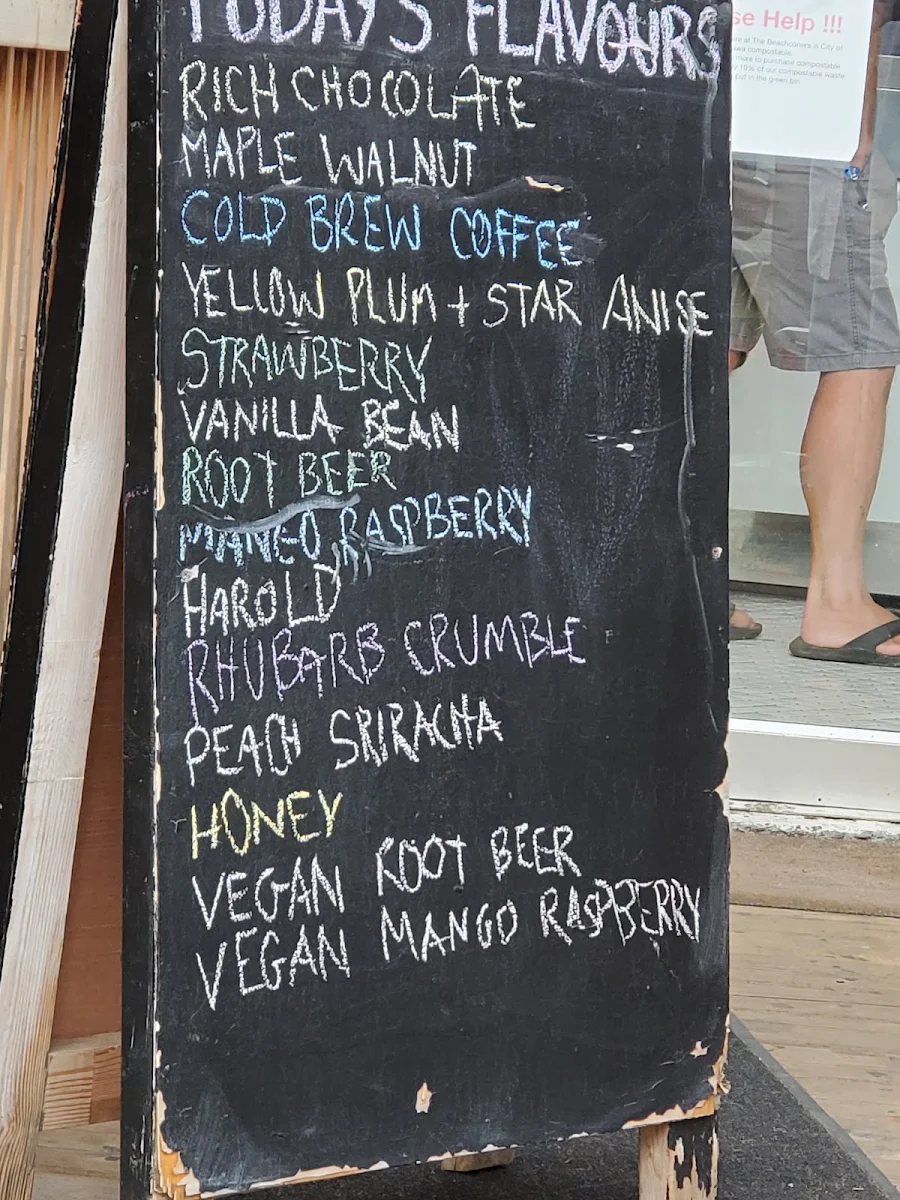 TODAY'S FLAVOURS
RICH CHOCOLATE
MAPLE WALNUT
COLD BREW COFFEE
YELLOW PLUM + STAR ANISE
STRAWBERRY
VANILLA BEAN
ROOT BEER
MANGO RASPBERRY
HAROLD
RHUBARB CRUMBLE
PEACH SRIRACHA
HONEY
VEGAN ROOT BEER
VEGAN MANGO RASPBERRY
se Help !!!
re at The Beachconers is City of
compostable.
more to purchase compostable
10% of our compostable waste
put in the green bin.